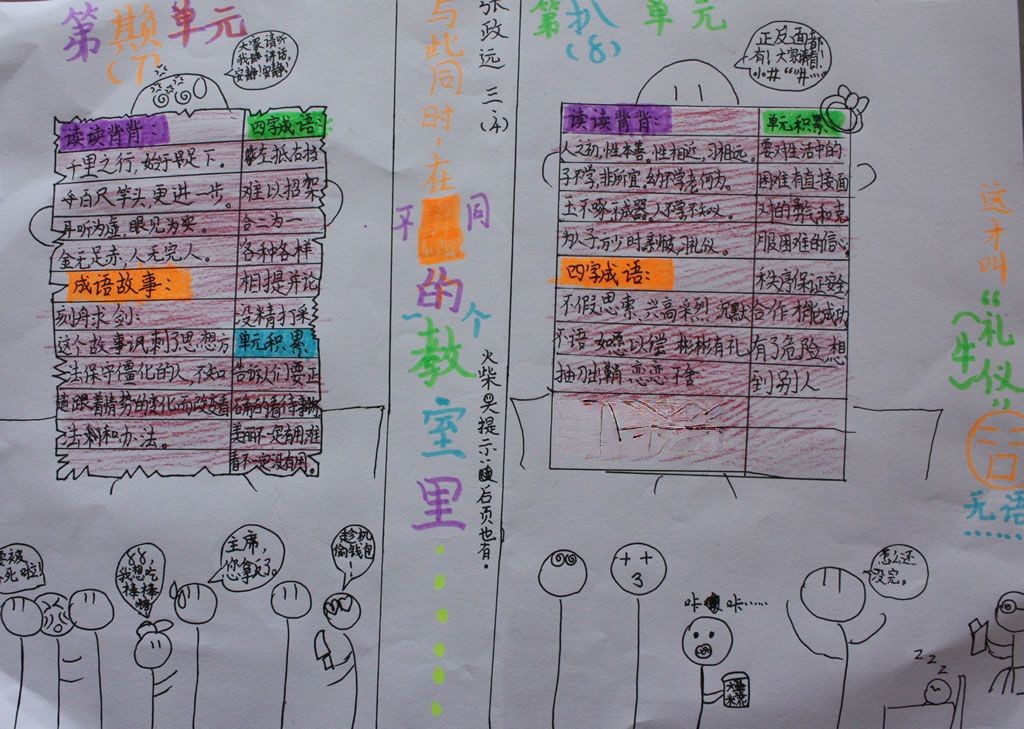 第颠单元
(7)
大家请听
我讲话,
安静!安静!
读读背背:
千里之行,始于足下。
百尺竿头,更进一步。
耳听为虚,眼见为实。
金无足赤,人无完人。
成语故事:
刻舟求剑:
这个故事讽刺了思想方
法保守僵化的人,不知
道跟着情势的变化而改变看
法和办法。
四字成语:
左抵右挡
难以招架
合二为一
各种各样
相提并论
没精打采
单元积累
告诉人们要正
确的看待事物
美丽不一定有用,难
看不一定没有用。
死啦!
88,
我想吃
棒棒
糖
主席,
你拿反了。
趁机
偷钱包
与此同时,在
平同
的
一个
教
室
里
......
张政远 三.(4)
火柴男提示:后页也有。
第扒单元
(8)
正反面都
有!大家请看!
读读背背:
人之初,性本善。性相近,习相远。
子不学,非所宜。幼不学,老何为。
玉不琢,不成器。人不学,不知义。
为人子,方少时,亲师友,习礼仪。
四字成语:
不假思索 兴高采烈 沉默
不语 如愿以偿 彬彬有礼
抽刀出鞘 恋恋不舍
单元积累
要对生活中的
困难有直接面
对的勇气和克
服困难的信心
秩序保证安全
合作才能成功
有了危险,想
到别人
咔嚓咔……
爆
米花
怎么还
没完。
z z z
这才叫
“礼仪”
(牛)
无语
......